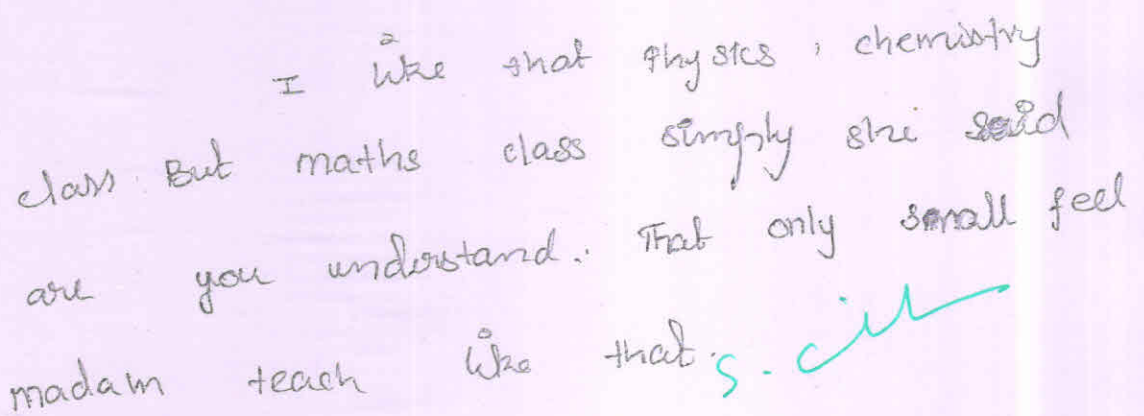 I like that Physics, chemistry
class. But maths class simply she said
are you understand. That only small feel
madam teach like that.